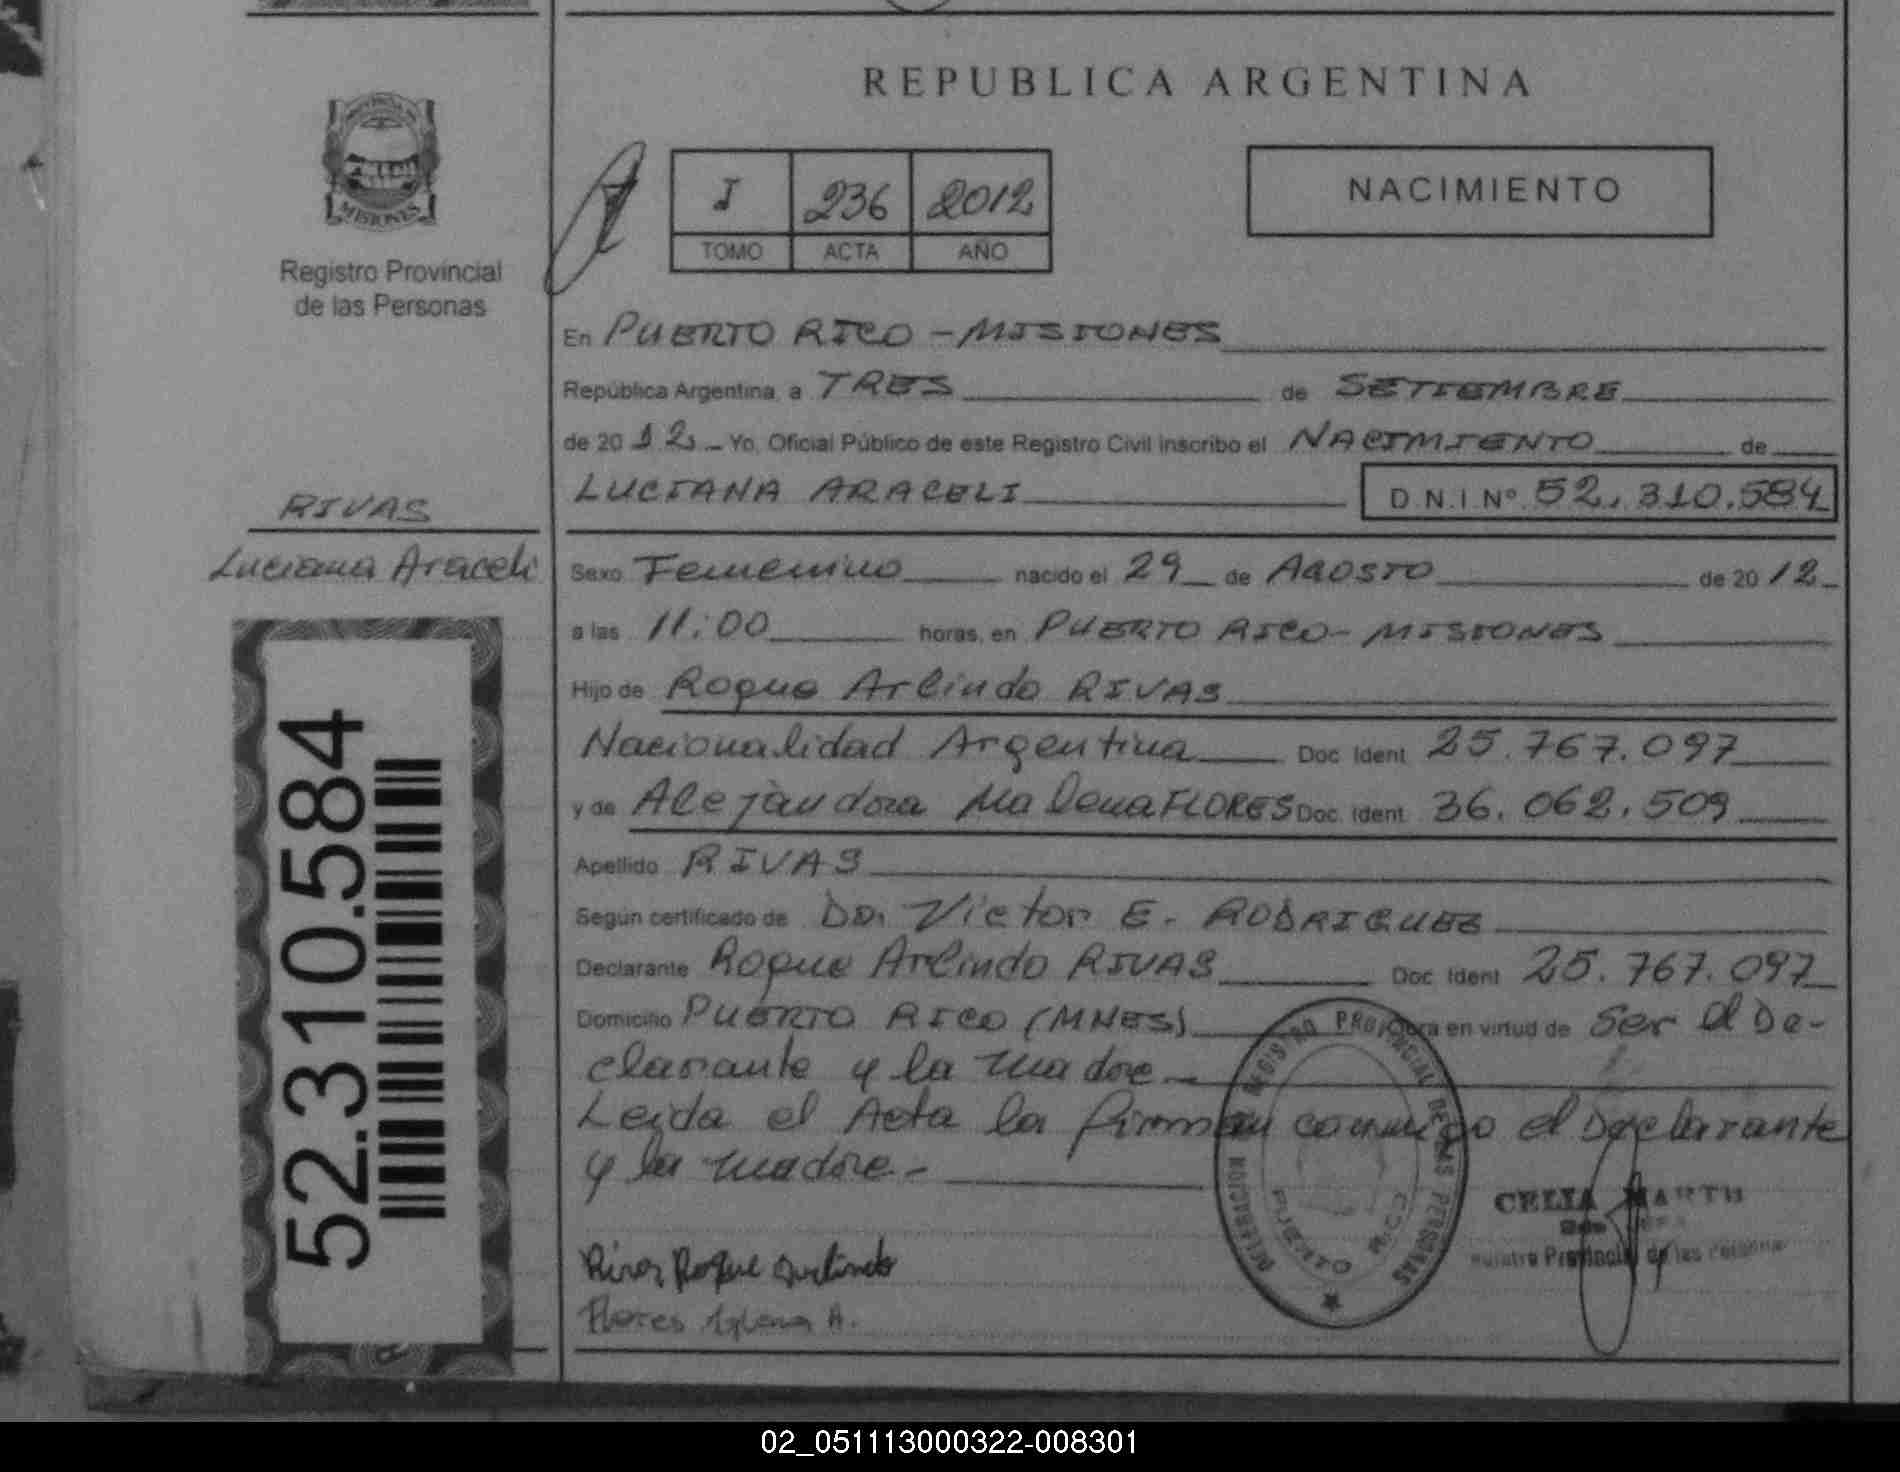 REPUBLICA ARGENTINA
MISIONES
Registro Provincial
de las Personas
I 236 2012
TOMO ACTA AÑO
NACIMIENTO
En PUERTO RICO - MISIONES
República Argentina, a TRES de SETIEMBRE
de 2012 Yo, Oficial Público de este Registro Civil inscribo el NACIMIENTO de
LUCIANA ARACELI D.N.I.Nº 52.310.584
RIVAS
Luciana Araceli
Sexo Femenino nacido el 29 de AGOSTO de 2012
a las 11:00 horas, en PUERTO RICO - MISIONES
Hijo de Roque Arlindo RIVAS
Nacionalidad Argentina Doc. Ident. 25.767.097
y de Alejandra Malena FLORES Doc. Ident. 36.062.509
Apellido RIVAS
Según certificado de Dr. Victor E. RODRIGUEZ
Declarante Roque Arlindo RIVAS Doc. Ident. 25.767.097
Domicilio PUERTO RICO (MNES) Obra en virtud de Ser el De-
clarante y la madre
Leida el Acta la firman conmigo el Declarante
y la madre -
52.310.584
DELEGACION REGISTRO PROVINCIAL DE LAS PERSONAS
PUERTO RICO
CELIA
Provincial de las
Rivas Roque Arlindo
Flores A.
02_051113000322-008301